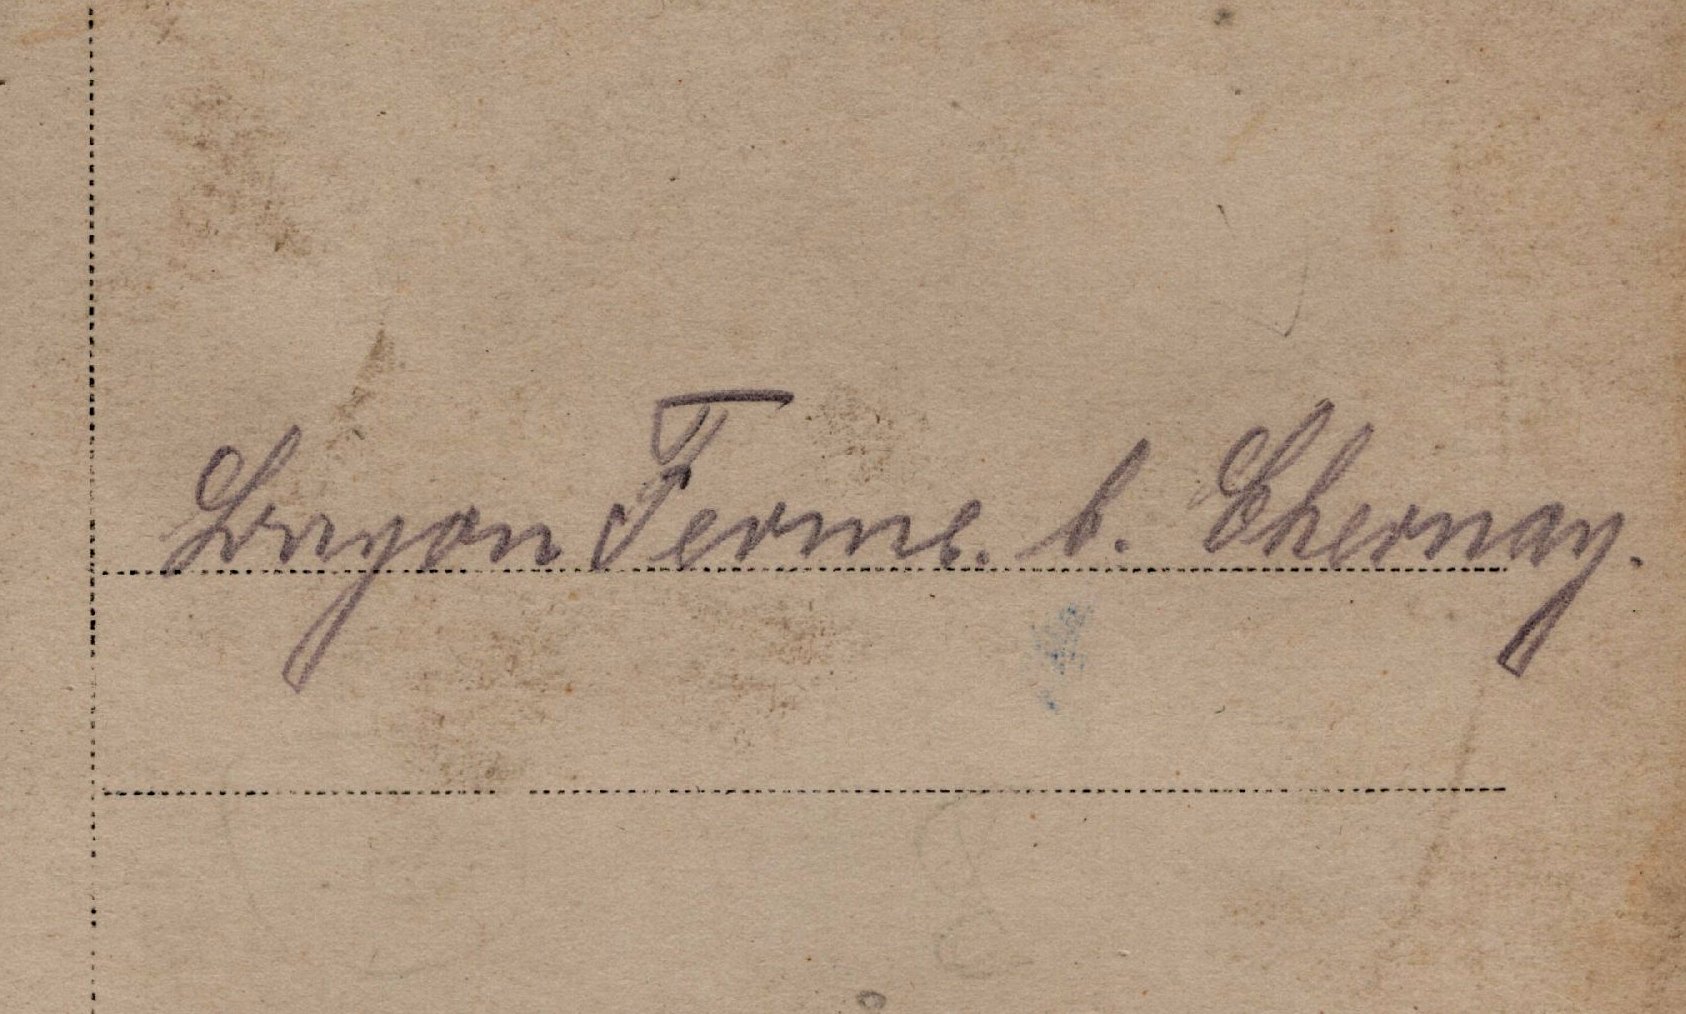 Bayon Ferme. b. Chernay.